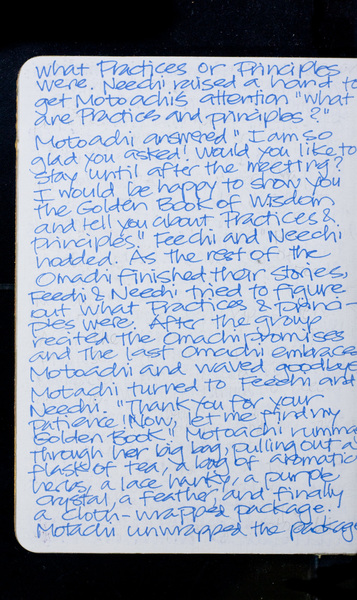 what Practices or Principles
were. Neechi raised a hand to
get Motoachi's attention "what
are Practices and principles?"
Motoachi answered "I am so
glad you asked! Would you like to
stay until after the meeting?
I would be happy to show you
the Golden Book of Wisdom
and tell you about Practices &
Principles." Feechi and Neechi
nodded. As the rest of the
Omachi finished their stories,
Feechi & Neechi tried to figure
out what Practices & Princi-
ples were. After the group
recited the Omachi promises
and the last Omachi embraced
Motoachi and waved goodbye
Motachi turned to Feechi and
Neechi. "Thank you for your
patience! Now, let me find my
Golden Book"! Motoachi rumma
through her big bag, pulling out a
flask of tea, a bag of aromatic
herbs, a lace hanky, a purple
crystal, a feather, and finally
a cloth-wrapped package.
Motachi unwrapped the package